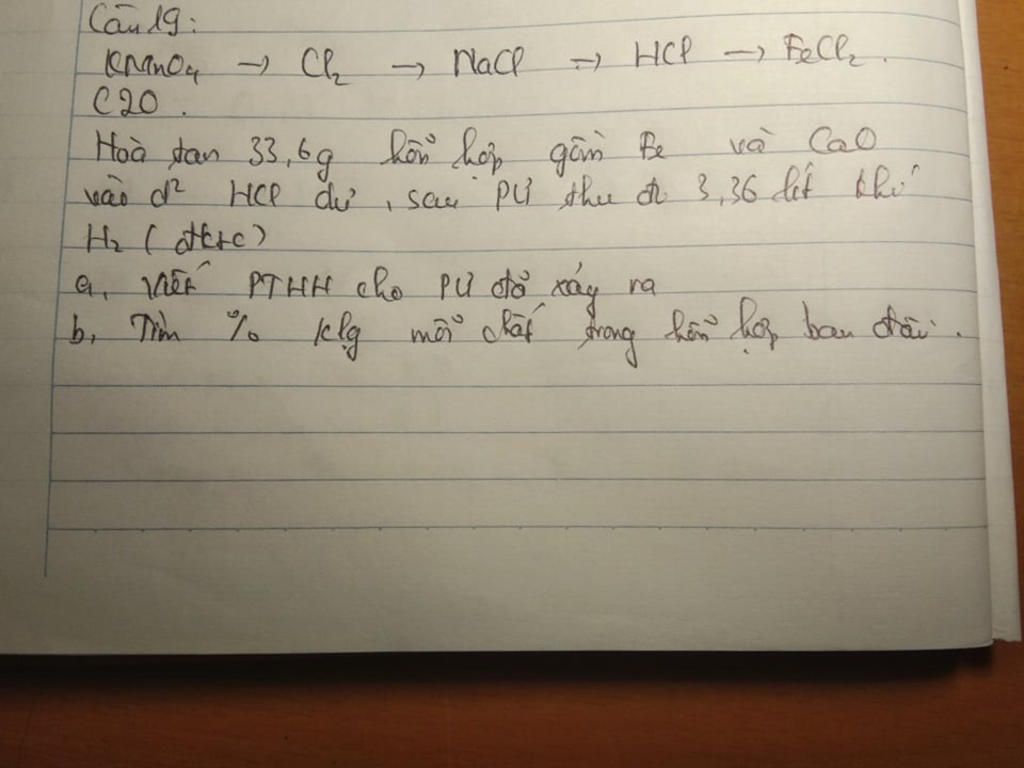 Câu 19:
KMnO₄ → Cl₂ → NaCl → HCl → FeCl₂.
C20.
Hoà tan 33,6g hỗn hợp gồm Fe và CaO
vào d² HCl dư, sau PƯ thu đc 3,36 lít khí
H₂ (đktc)
a, Viết PTHH cho PƯ đã xảy ra
b, Tìm % klg mỗi chất trong hỗn hợp ban đầu.